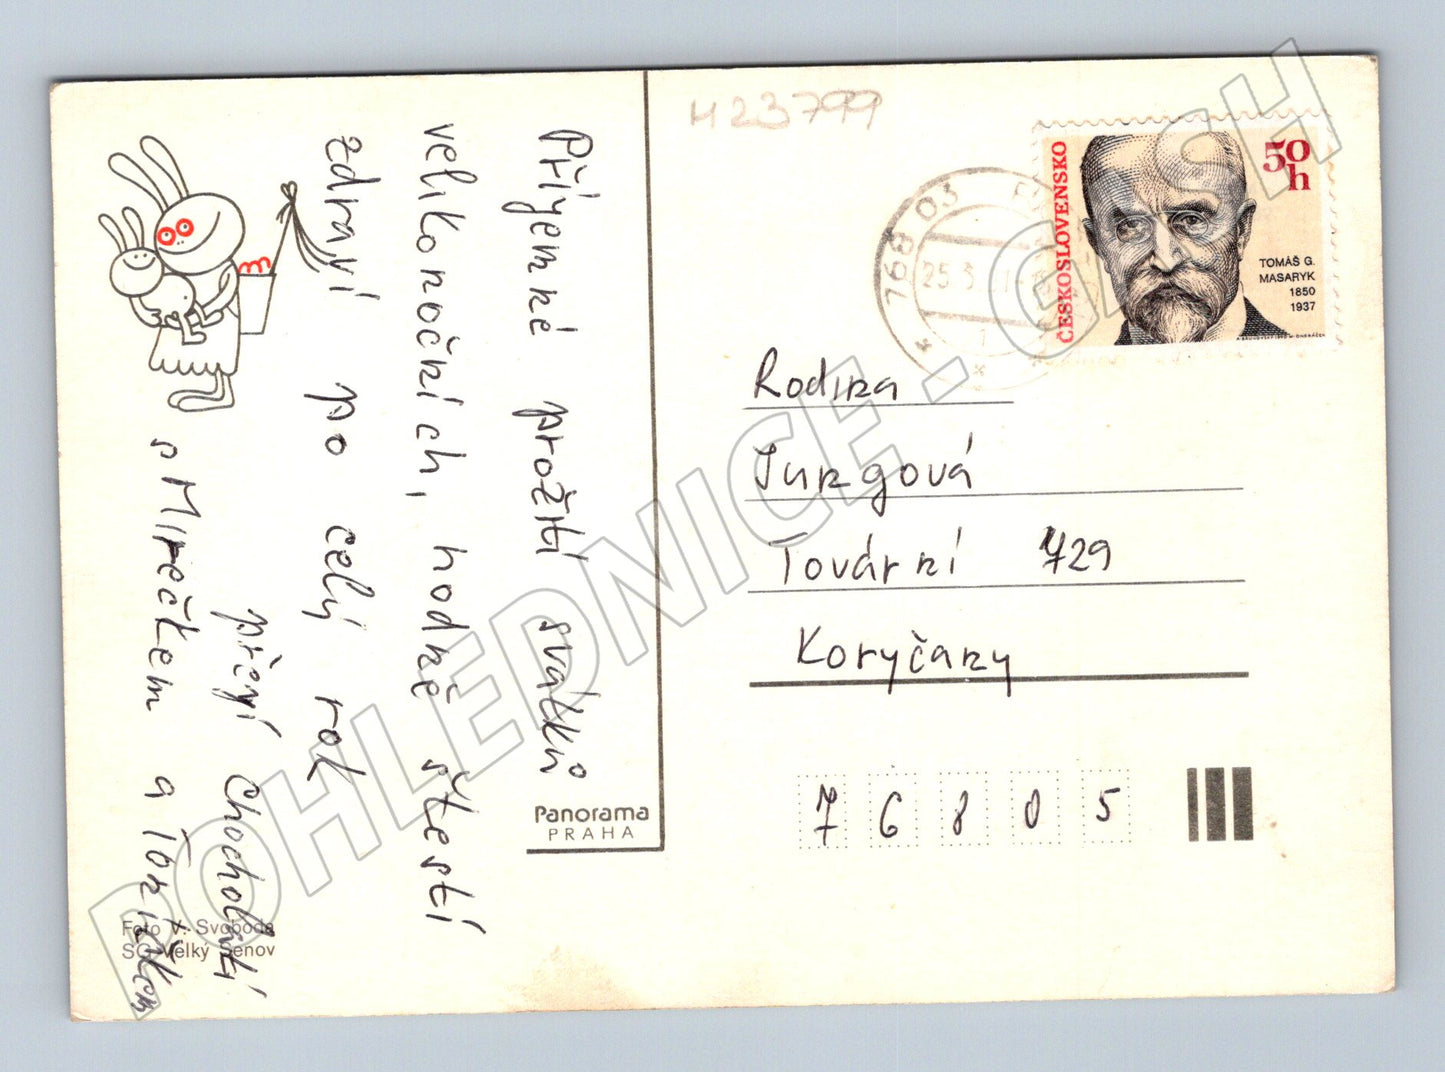 H23799
ČESKOSLOVENSKO
50
h
TOMÁŠ G.
MASARYK
1850
1937
768 03
25.3.
1
Příjemné prožití svátků
velikonočních, hodně štěstí
zdraví po celý rok
přejí Chocholatí
s Mirečkem a Toníčkem
Rodina
Jurgová
Tovární 729
Koryčany
76805
Panorama
PRAHA
Foto V. Svoboda
SČ Velký Šenov
POHLEDNICE - GASH